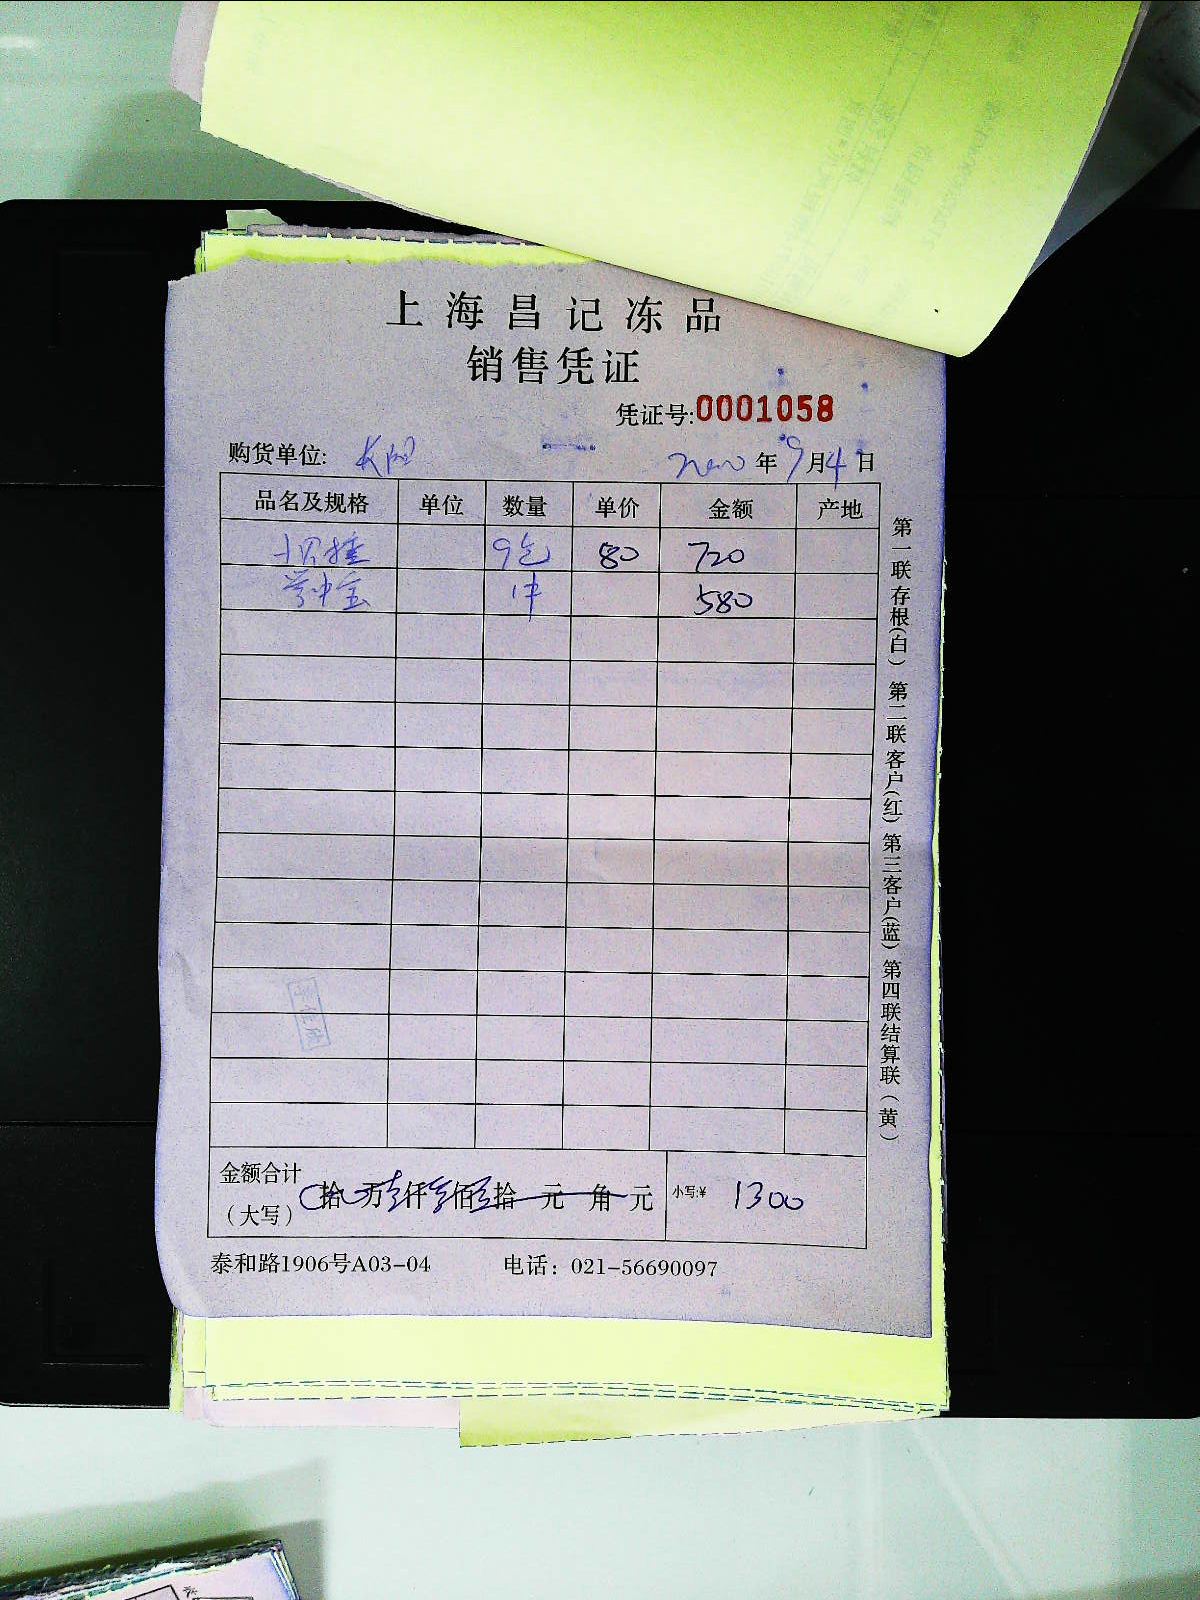 上海昌记冻品
销售凭证
凭证号:0001058
购货单位: 年9月4日
品名及规格 单位 数量 单价 金额 产地
9包 80 720
1件 580
金额合计
(大写) 拾 万壹仟叁佰 拾 元 角 元 小写:¥ 1300
泰和路1906号A03-04 电话: 021-56690097
第一联存根(白) 第二联客户(红) 第三客户(蓝) 第四联结算联(黄)